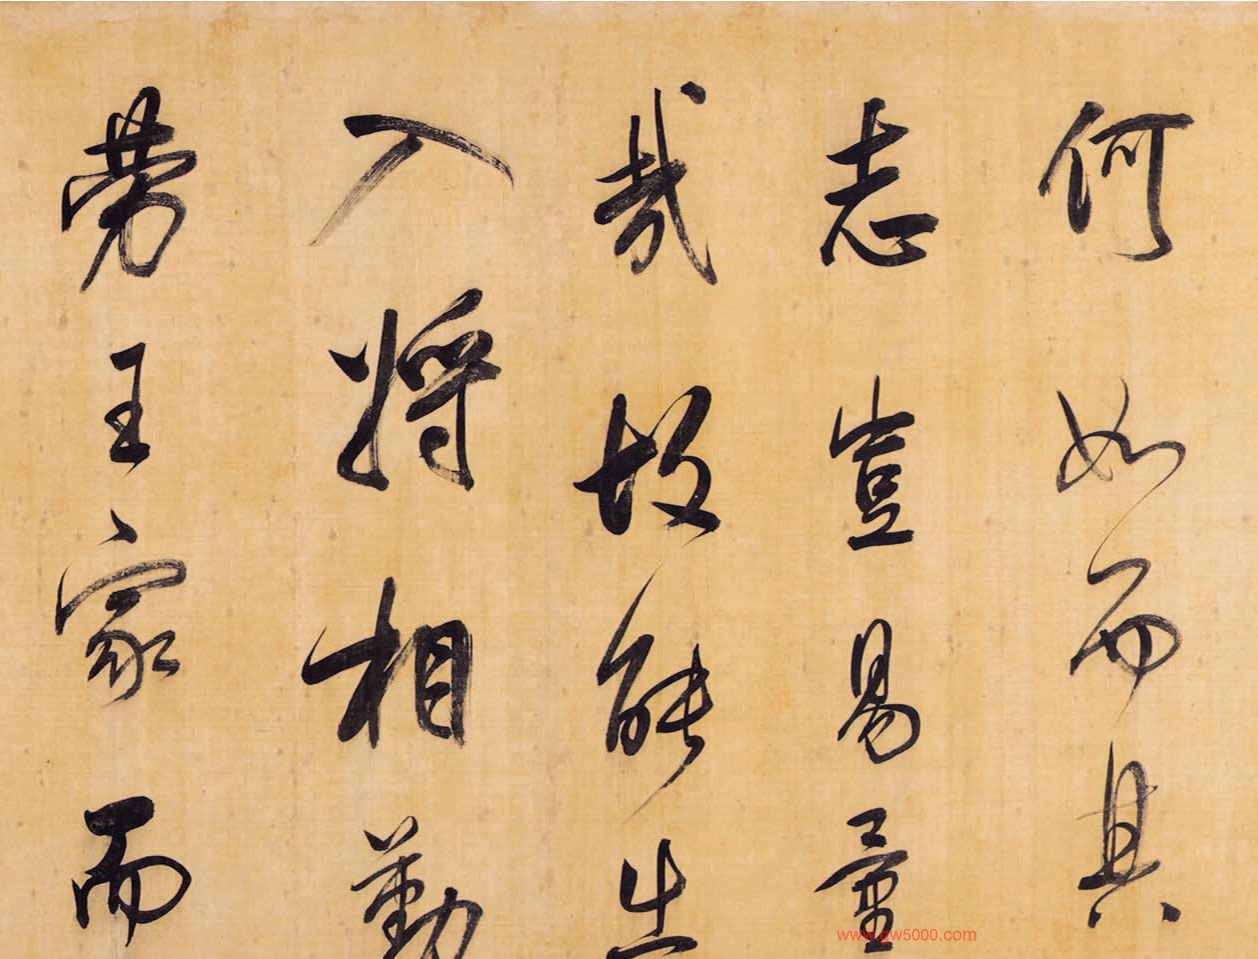 何如而其
志豈易量
哉故能出
入將相勤
勞王家而
www.gw5000.com